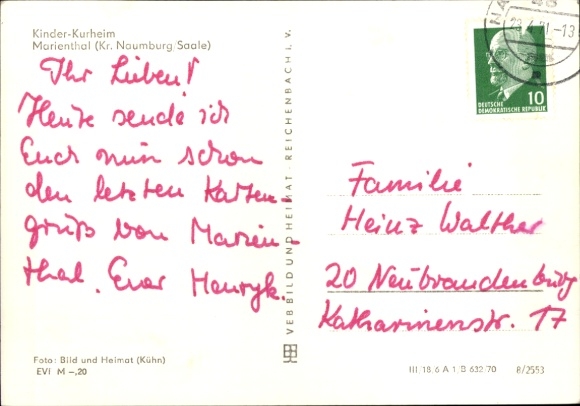 Kinder-Kurheim
Marienthal (Kr. Naumburg Saale)
Ihr Lieben!
Heute sende ich
Euch nun schon
den letzten Karten-
gruß von Marien-
thal. Euer Henryk.
Foto: Bild und Heimat (Kühn)
EVI M -,20
VEB BILD UND HEIMAT · REICHENBACH i. V.
23.4.71-13
10
DEUTSCHE
DEMOKRATISCHE REPUBLIK
Familie
Heinz Walther
20 Neubrandenburg
Katharinenstr. 17
III/18/6 A 1/B 632/70 8/2553